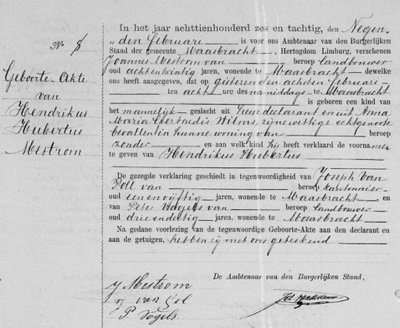 In het jaar achttienhonderd zes en tachtig, den Negen-
No. 8
den Februari is voor ons Ambtenaar van den Burgerlijken
Stand der gemeente Maasbracht, Hertogdom Limburg, verschenen
Joannes Mestrom van beroep Landbouwer
oud achtentwintig jaren, wonende te Maasbracht, dewelke
ons heeft aangegeven, dat op gisteren den achtsten Februari
ten acht ure des namiddags te Maasbracht
het mannelijk geslacht uit hem declarant en uit Anna
Maria Wilms, zijne wettige echtgenoote
bevallen in hunne woning van
zonder en aan welk kind hij heeft verklaard de voornamen
te geven van Hendrikus Hubertus
Geboorte-Akte
van
Hendrikus
Hubertus
Mestrom
De gezegde verklaring geschiedt in tegenwoordigheid van Joseph van
Poll van beroep kantonnier
oud eenenvijftig jaren, wonende te Maasbracht en
van Peter Vogels van beroep Landbouwer
oud drieendertig jaren, wonende te Maasbracht
Na gedane voorlezing van de tegenwoordige Geboorte-Akte aan den declarant en
aan de getuigen, hebben zij met ons geteekend
De Ambtenaar van den Burgerlijken Stand,
J Mestrom
J van Pol
P. Vogels.